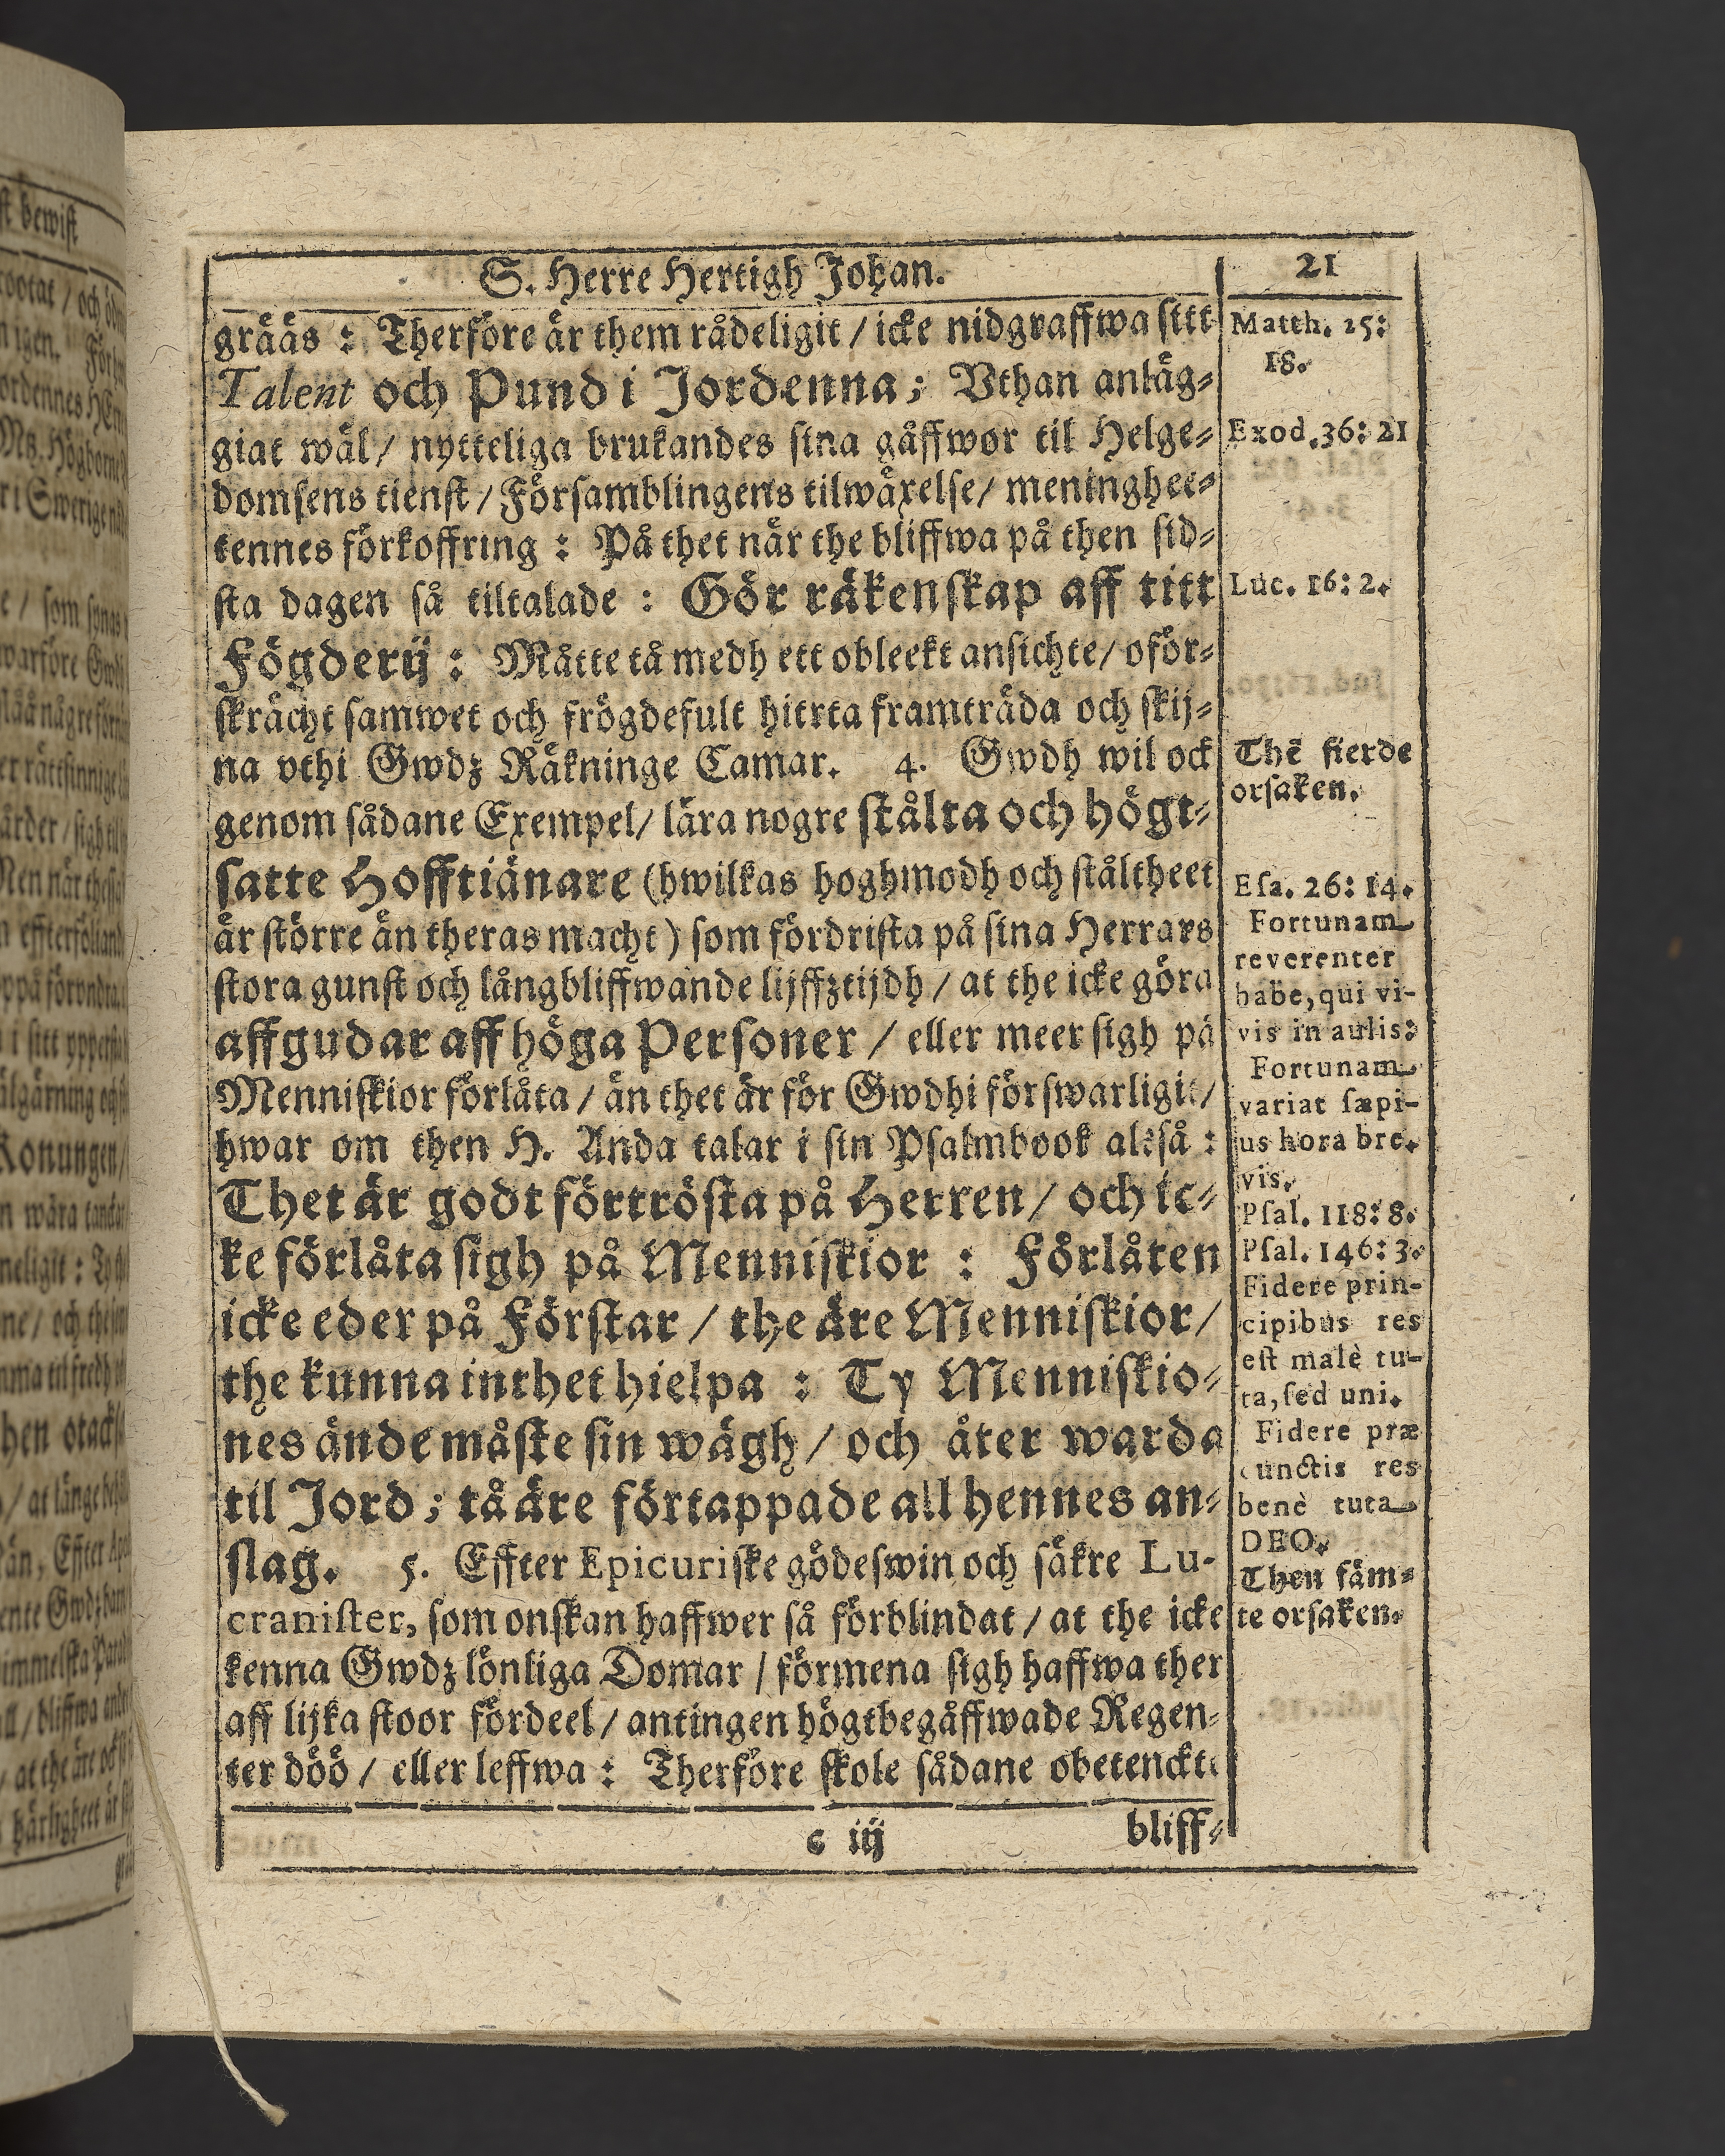 S. Herre Hertigh Johan.
21
grääs : Therföre är them rådeligit / icke nidgraffwa sitt
Talent och Pund i Jordenna; Vthan anläg-
giat wäl / nytteliga brukandes sina gåffwor til Helge-
domsens tienst / Församblingens tilwäxelse / meninghee-
tennes förkoffring : På thet när the bliffwa på then sid-
sta dagen så tiltalade : Gör räkenskap aff titt
Fögderij : Måtte tå medh ett obleekt ansichte / oför-
skrächt samwet och frögdefult hierta framträda och skij-
na vthi Gwdz Räkninge Camar. 4. Gwdh wil ock
genom sådane Exempel / lära nogre stålta och högt-
satte Hofftiänare (hwilkas hoghmodh och ståltheet
är större än theras macht) som fördrista på sina Herrars
stora gunst och långbliffwande lijffztijdh / at the icke göra
affgudar aff höga Personer / eller meer sigh på
Menniskior förlåta / än thet är för Gwdhi förswarligit /
hwar om then H. Anda talar i sin Psalmbook altså :
Thet är godt förtrösta på Herren / och ic-
ke förlåta sigh på Menniskior : Förlåten
icke eder på Förstar / the äre Menniskior /
the kunna inthet hielpa : Ty Menniskio-
nes ände måste sin wägh / och åter warda
til Jord ; tå äre förtappade all hennes an-
slag. 5. Effter Epicuriske gödeswin och säkre Lu-
cranister, som onskan haffwer så förblindat / at the icke
kenna Gwdz lönliga Domar / förmena sigh haffwa ther
aff lijka stoor fördeel / antingen högtbegåffwade Regen-
ter döö / eller leffwa : Therföre skole sådane obetenckte
c iij
bliff-
Matth. 25:
18.
Exod. 36: 21
Luc. 16: 2.
Thē fierde
orsaken.
Esa. 26: 14.
Fortunam
reverenter
habe, qui vi-
vis in aulis:
Fortunam
variat sæpi-
us hora bre-
vis.
Psal. 118: 8.
Psal. 146: 3.
Fidere prin-
cipibus res
est malè tu-
ta, sed uni.
Fidere præ
cunctis res
benè tuta
DEO.
Then fäm-
te orsaken.